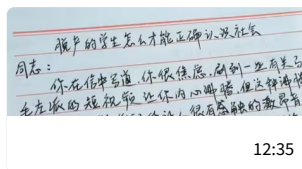 脱产的学生怎么才能正确认识社会
同志：
你在信中写道，你很焦虑，刷到一些有关马
毛左派的短视频让你内心澎湃，但这种澎湃
很有感触的激昂青
12:35